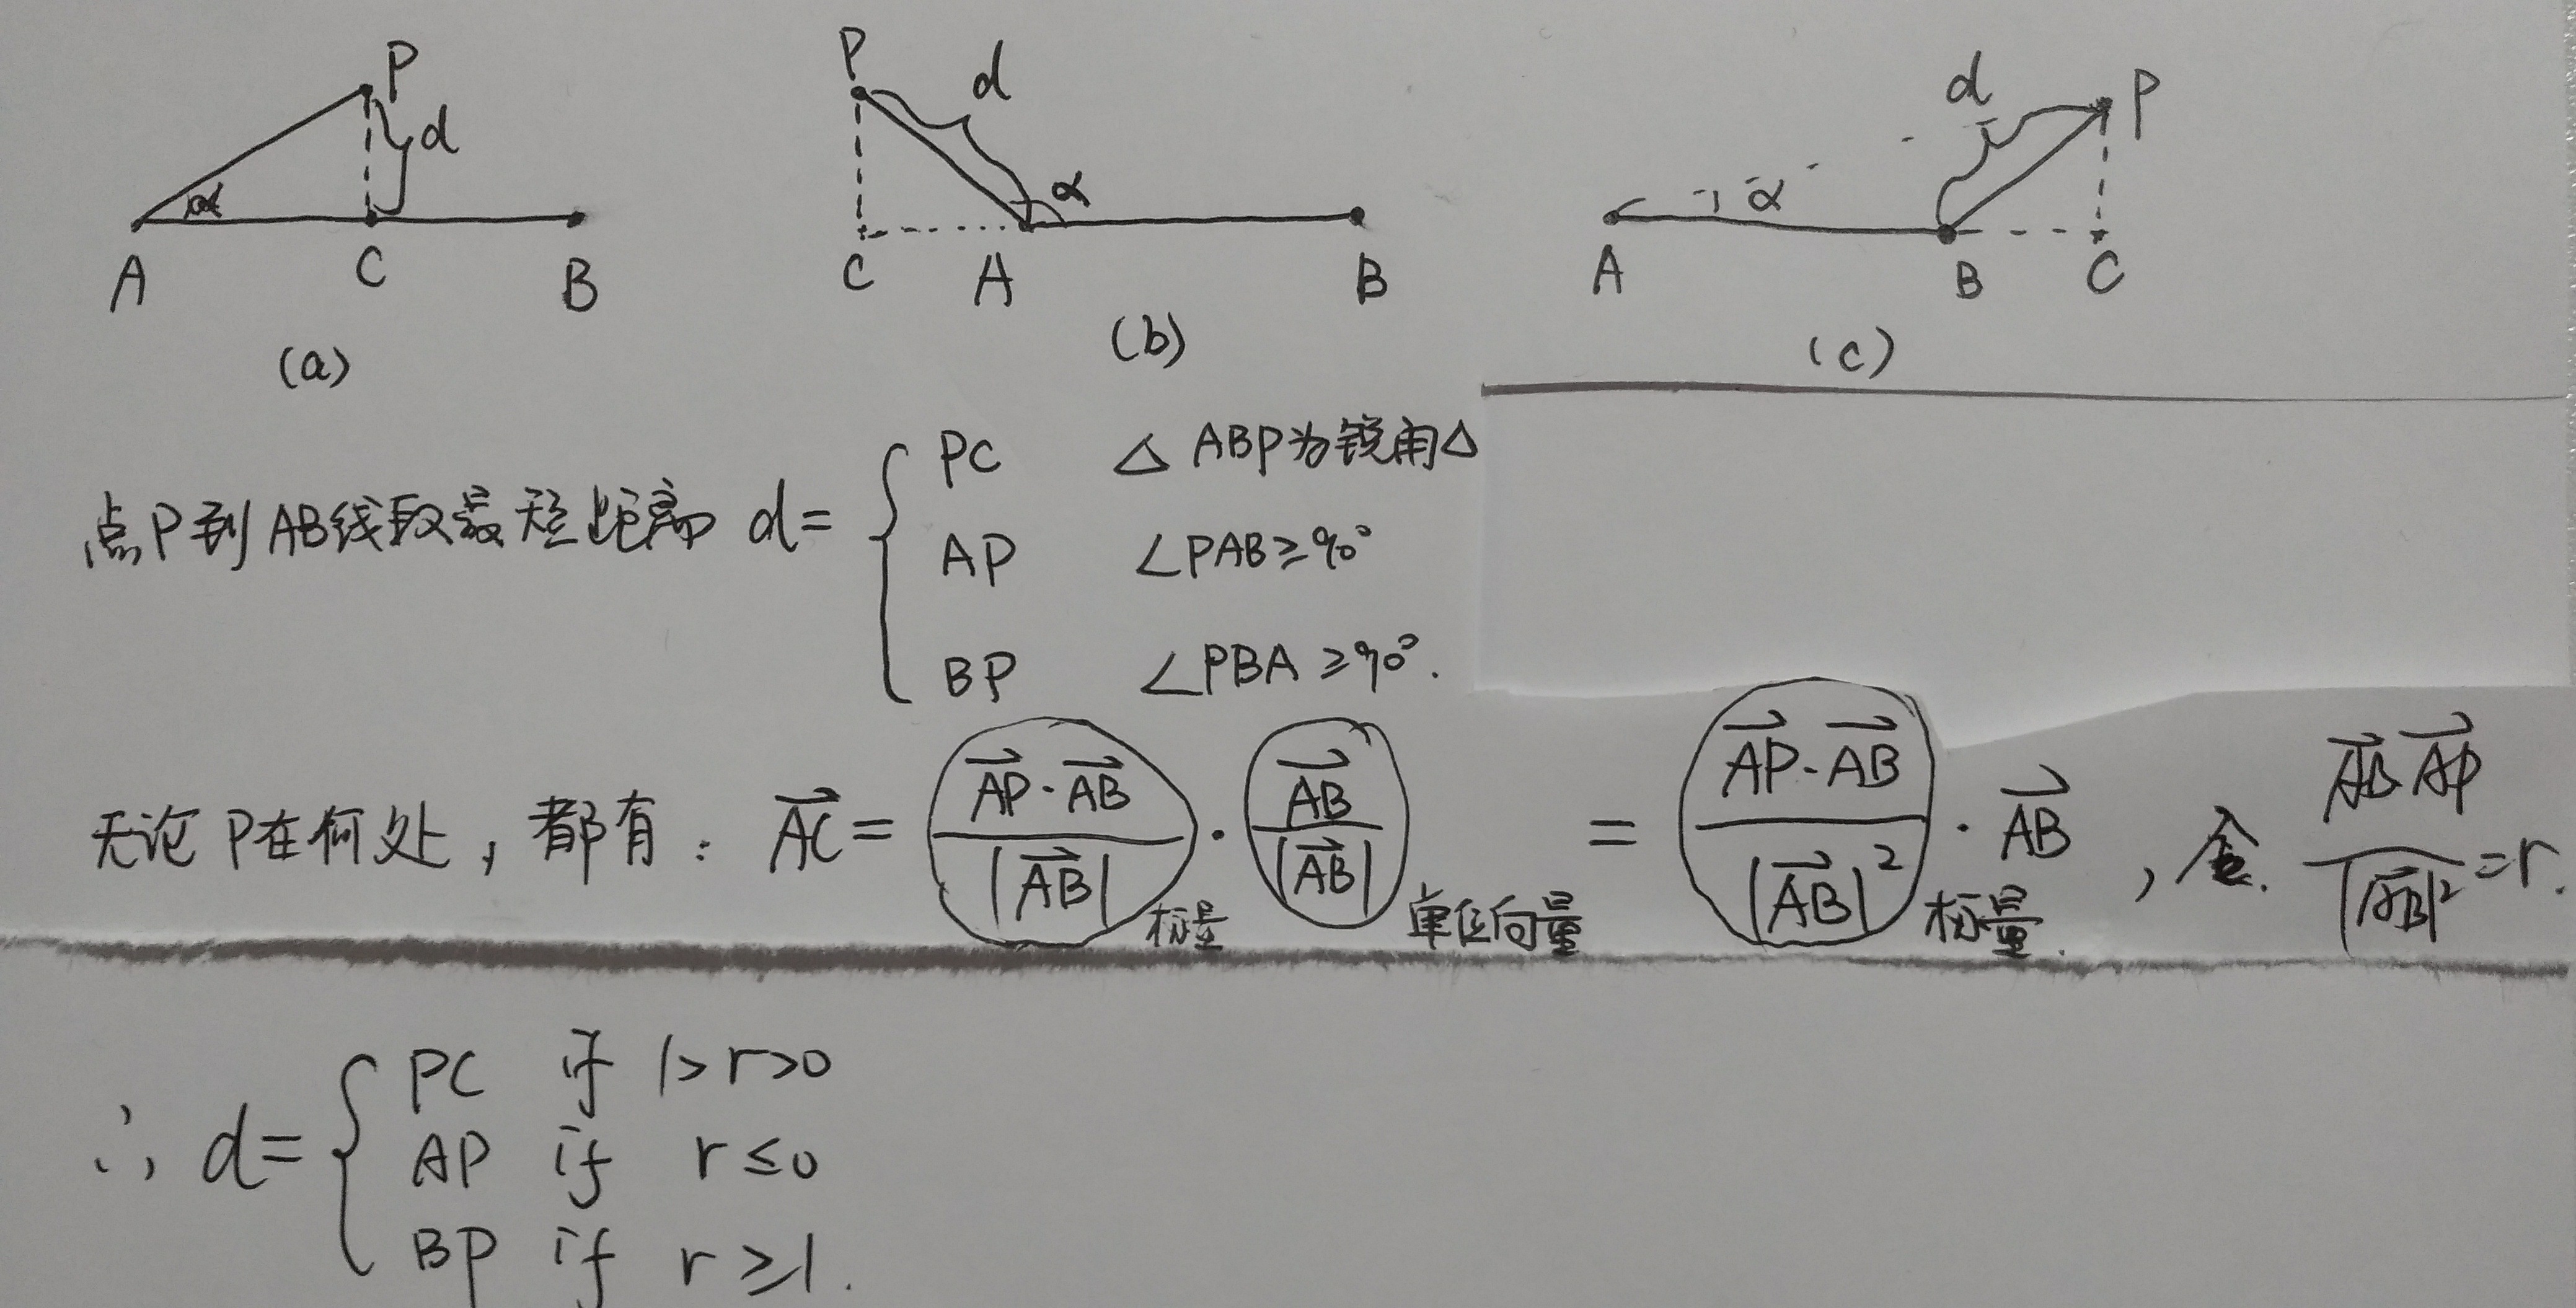 P d α A C B
P d α C A B
d P α A B C
(a) (b) (c)
点P到AB线段最短距离 d= { PC △ABP为锐角△
AP ∠PAB≥90°
BP ∠PBA≥90°.
无论P在何处,都有: \vec{AC} = \frac{\vec{AP}·\vec{AB}}{|\vec{AB}|} 标量 · \frac{\vec{AB}}{|\vec{AB}|} 单位向量 = \frac{\vec{AP}·\vec{AB}}{|\vec{AB}|^2} 标量. · \vec{AB} , 令. \frac{\vec{AB}\vec{AP}}{|\vec{AB}|^2} = r.
∴ d= { PC if 1>r>0
AP if r≤0
BP if r≥1.